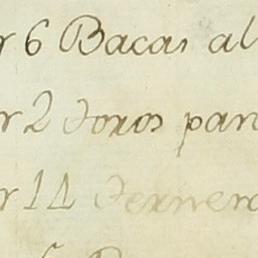 r 6 Bacas al
r 2 Toros par
r 11 Ternero